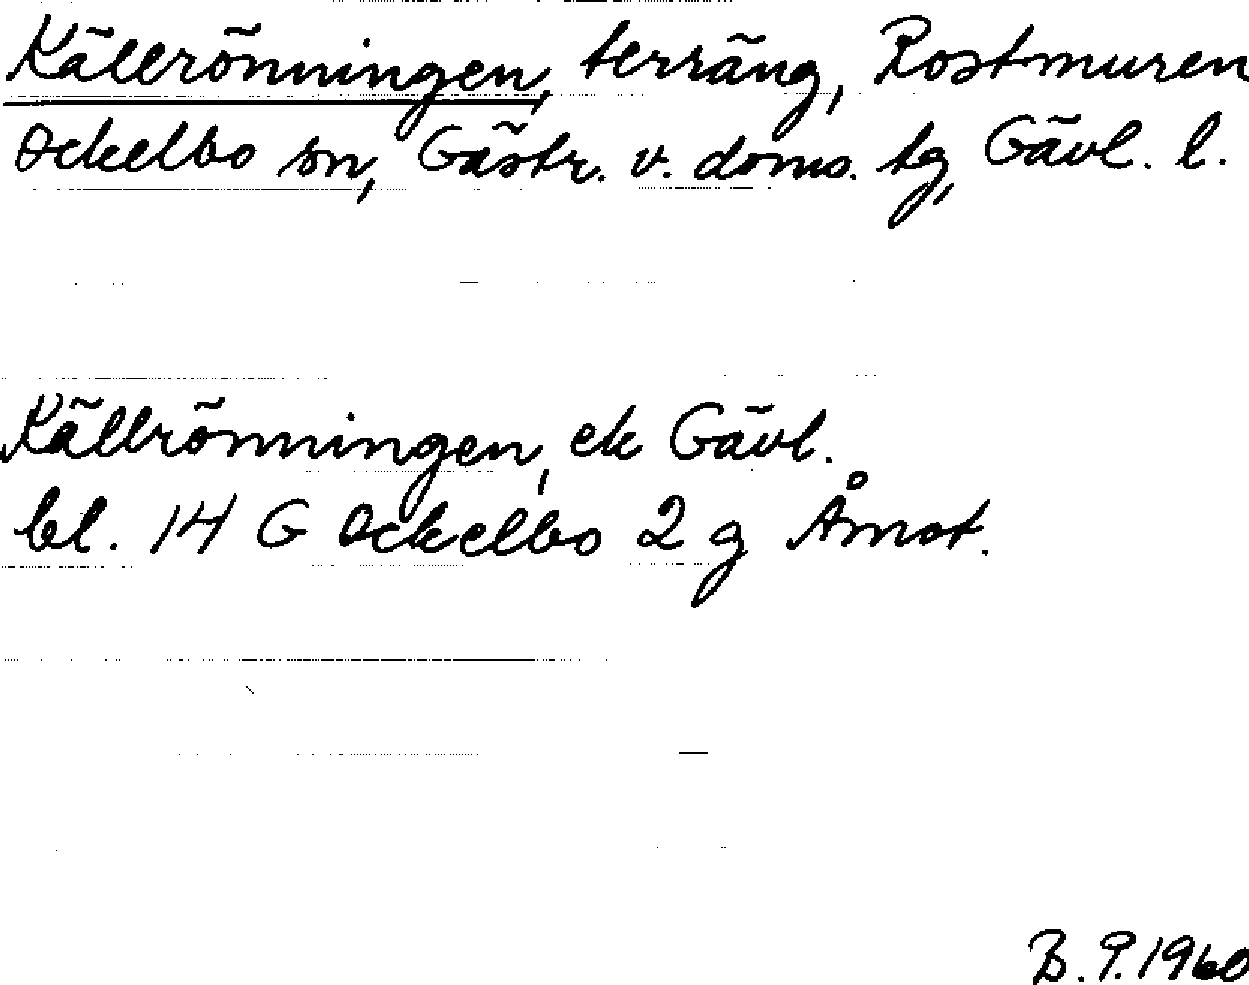 Källrönningen, terräng, Rostmuren
Ockelbo sn, Gästr. v. doms. tg, Gävl. l.
Källrönningen, ek Gävl.
bl. 14 G Ockelbo 2 g Åmot.
B.P. 1960